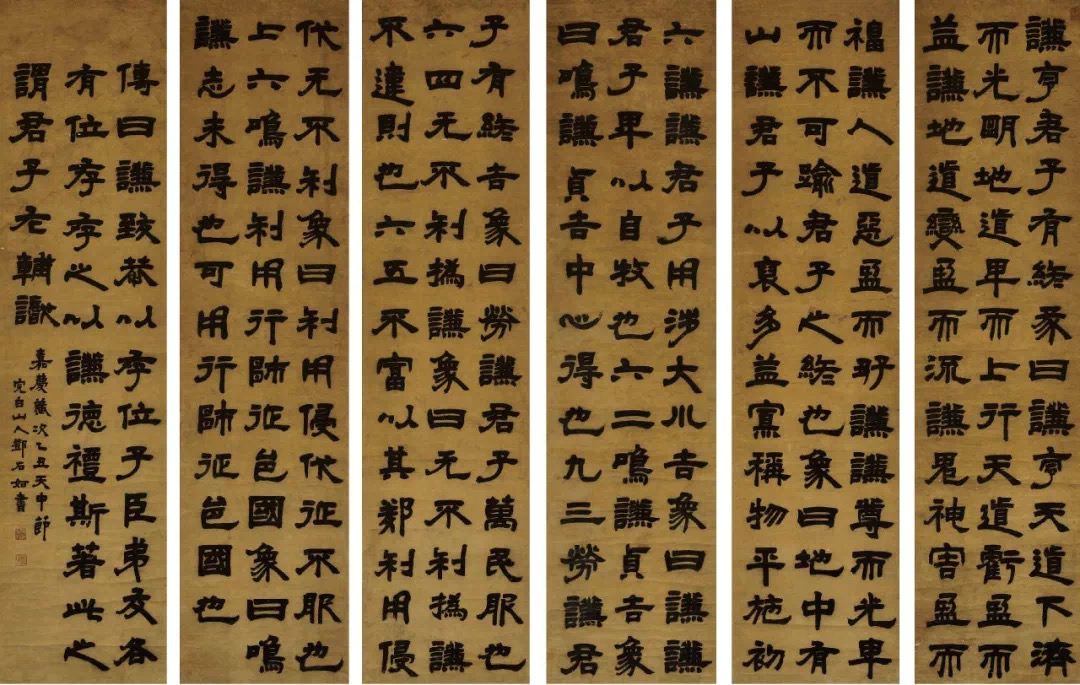 謙亨君子有終彖曰謙亨天道下濟
而光明地道卑而上行天道虧盈而
益謙地道變盈而流謙鬼神害盈而
福謙人道惡盈而好謙謙尊而光卑
而不可踰君子之終也象曰地中有
山謙君子以裒多益寡稱物平施初
六謙謙君子用涉大川吉象曰謙謙
君子卑以自牧也六二鳴謙貞吉象
曰鳴謙貞吉中心得也九三勞謙君
子有終吉象曰勞謙君子萬民服也
六四无不利撝謙象曰无不利撝謙
不違則也六五不富以其鄰利用侵
伐无不利象曰利用侵伐征不服也
上六鳴謙利用行師征邑國象曰鳴
謙志未得也可用行師征邑國也
傳曰謙致恭以存位子臣弟友各
有位存存之以謙德禮斯著此之
謂君子輔
嘉慶歲次乙丑天中節
完白山人鄧石如書